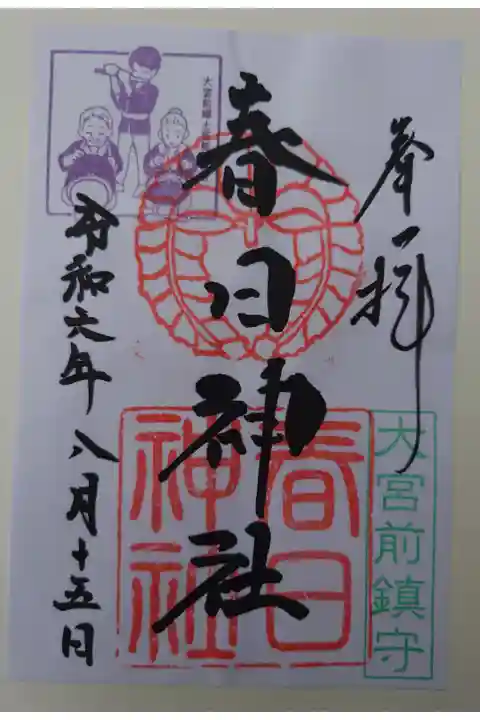 奉拝
大宮前鎮守
春日神社
春日神社
令和六年八月十五日